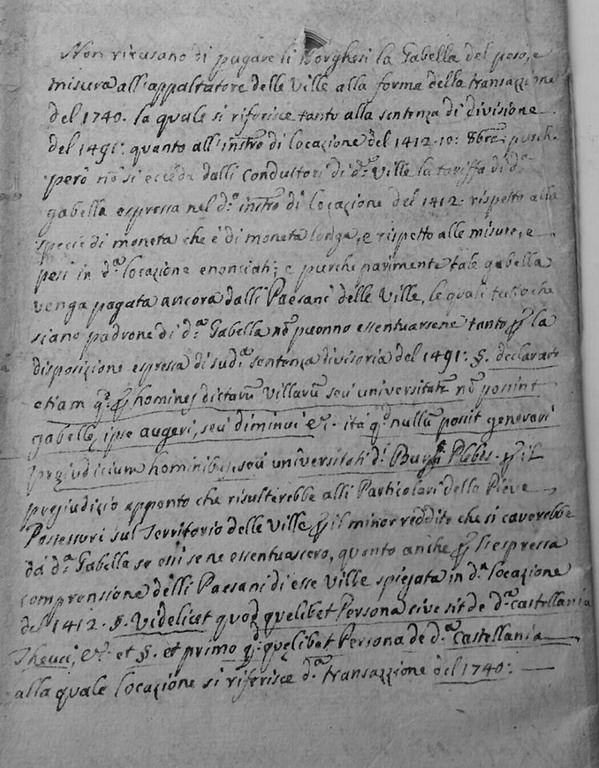 Non ricusano di pagare li Borghesi la Gabella del peso, e
misura all'appaltatore delle Ville alla forma della transazzione
del 1740. la quale si riferisce tanto alla sentenza di divisione
del 1491: quanto all'instro di locazione del 1412. 10: 8bre: purche
però nō si ecceda dalli Conduttori di d.e Ville la tariffa di d.a
gabella espressa nel d.o instro di Locazione del 1412: rispetto alla
specie di moneta che è di moneta longa, e rispetto alle misure, e
pesi in d.a locazione enonciati; e purche parimente tale gabella
venga pagata ancora dalli Paesani delle Ville, le quali tuttoche
siano padrone di d.a Gabella nō puonno essentuarsene tanto ꝑ la
disposizione espressa di sud.a sentenza divisoria del 1491: §. declarato
etiam q.d ꝑ homines dictarū Villarū seu universitatū nō possint
gabelle, ipse augeri, seu diminui &c. ità q.d nullū possit generari
prejudicium hominibus, seu universitati d.i Burgi Plebis. ꝑ il
prejudizio apponto che risulterebbe alli Particolari della Pieve
Possessori sul Territorio delle Ville ꝑ il minor reddito che si caverebbe
da d.a Gabella se essi se ne essentuassero, quanto anche ꝑ l'espressa
comprensione delli Paesani di esse Ville spiegata in d.a locazione
del 1412. §. Videlicet quod quelibet Persona sive sit de d.a castellania
Theuci, &c. et §. et primo q.d quelibet Persona de d.a Castellania
alla quale locazione si riferisce d.a transazzione del 1740: